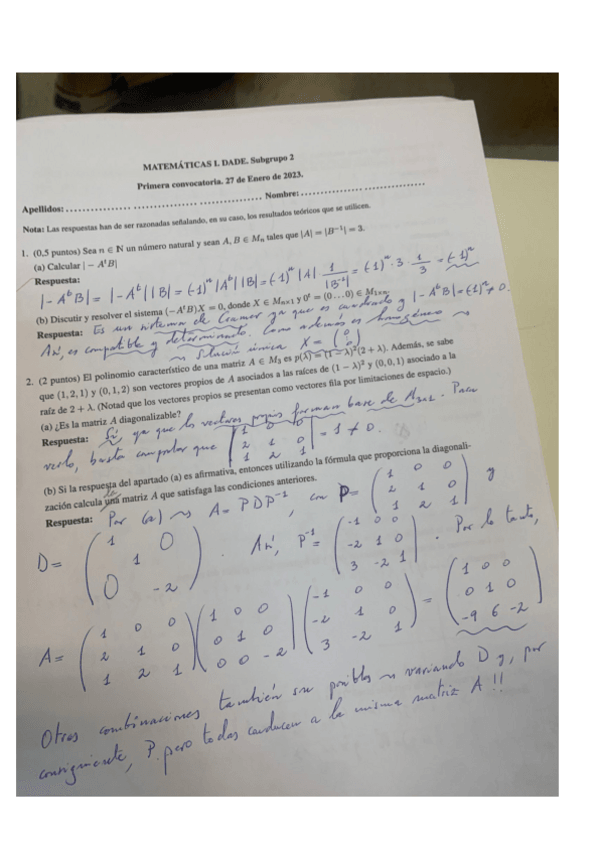 MATEMÁTICAS I. DADE. Subgrupo 2
Primera convocatoria. 27 de Enero de 2023.
Apellidos: ................................................ Nombre: ................................
Nota: Las respuestas han de ser razonadas señalando, en su caso, los resultados teóricos que se utilicen.
1. (0,5 puntos) Sea n ∈ N un número natural y sean A, B ∈ Mₙ tales que |A| = |B⁻¹| = 3.
(a) Calcular |− AᵗB|
Respuesta:
|-AᵗB| = |-Aᵗ||B| = (-1)ⁿ |Aᵗ||B| = (-1)ⁿ |A| · 1/|B⁻¹| = (-1)ⁿ · 3 · 1/3 = (-1)ⁿ
(b) Discutir y resolver el sistema (−AᵗB)X = 0, donde X ∈ Mₙₓ₁ y 0ᵗ = (0...0) ∈ M₁ₓₙ.
Respuesta: Es un sistema de Cramer ya que es cuadrado y |-AᵗB| = (-1)ⁿ ≠ 0.
Así, es compatible y determinado. Como además es homogéneo ⇝
⇝ Solución única X = (0 ⋮ 0)
2. (2 puntos) El polinomio característico de una matriz A ∈ M₃ es p(λ) = (1 − λ)²(2 + λ). Además, se sabe
que (1, 2, 1) y (0, 1, 2) son vectores propios de A asociados a las raíces de (1 − λ)² y (0, 0, 1) asociado a la
raíz de 2 + λ. (Notad que los vectores propios se presentan como vectores fila por limitaciones de espacio.)
(a) ¿Es la matriz A diagonalizable?
Respuesta: Sí, ya que los vectores propios forman base de Para
verlo, basta comprobar que
| 1 0 0 |
| 2 1 0 | = 1 ≠ 0.
| 1 2 1 |
(b) Si la respuesta del apartado (a) es afirmativa, entonces utilizando la fórmula que proporciona la diagonali-
zación calcula la una matriz A que satisfaga las condiciones anteriores.
Respuesta: Por (a) ⇝ A = PDP⁻¹, con P = (1 0 0 / 2 1 0 / 1 2 1) y
D = (1 0 / 1 / 0 -2) . Así, P⁻¹ = (-1 0 0 / -2 1 0 / 3 -2 1) . Por lo tanto,
A = (1 0 0 / 2 1 0 / 1 2 1) (1 0 0 / 0 1 0 / 0 0 -2) (-1 0 0 / -2 1 0 / 3 -2 1) = (1 0 0 / 0 1 0 / -9 6 -2)
Otras combinaciones también son posibles ⇝ variando D y, por
consiguiente, P. pero todas conducen a la misma matriz A !!